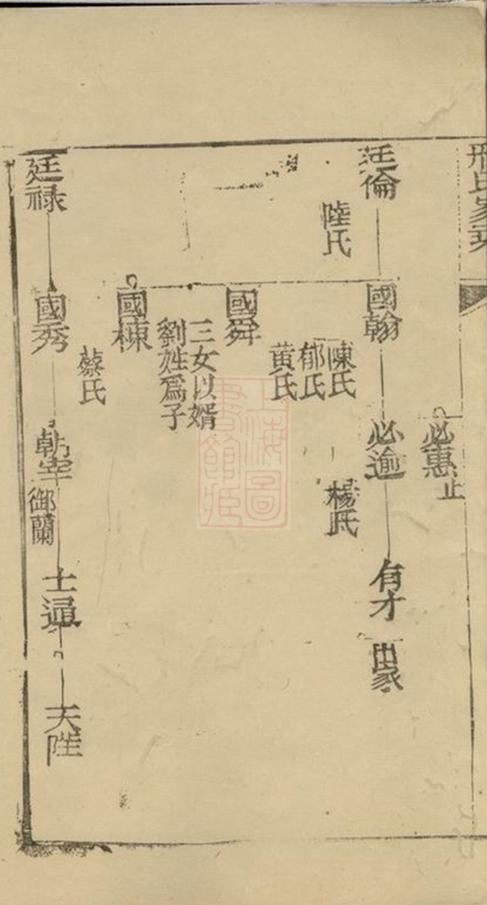 邢氏家乘
必惠 止
廷倫
陸氏
國翰
陳氏
郁氏
黃氏
必逾
楊氏
有才
出家
國舜
三女以婿
劉姓爲子
國棟
廷祿
國秀
蔡氏
朝宰
御蘭
士通
天陛
上海圖
書館藏